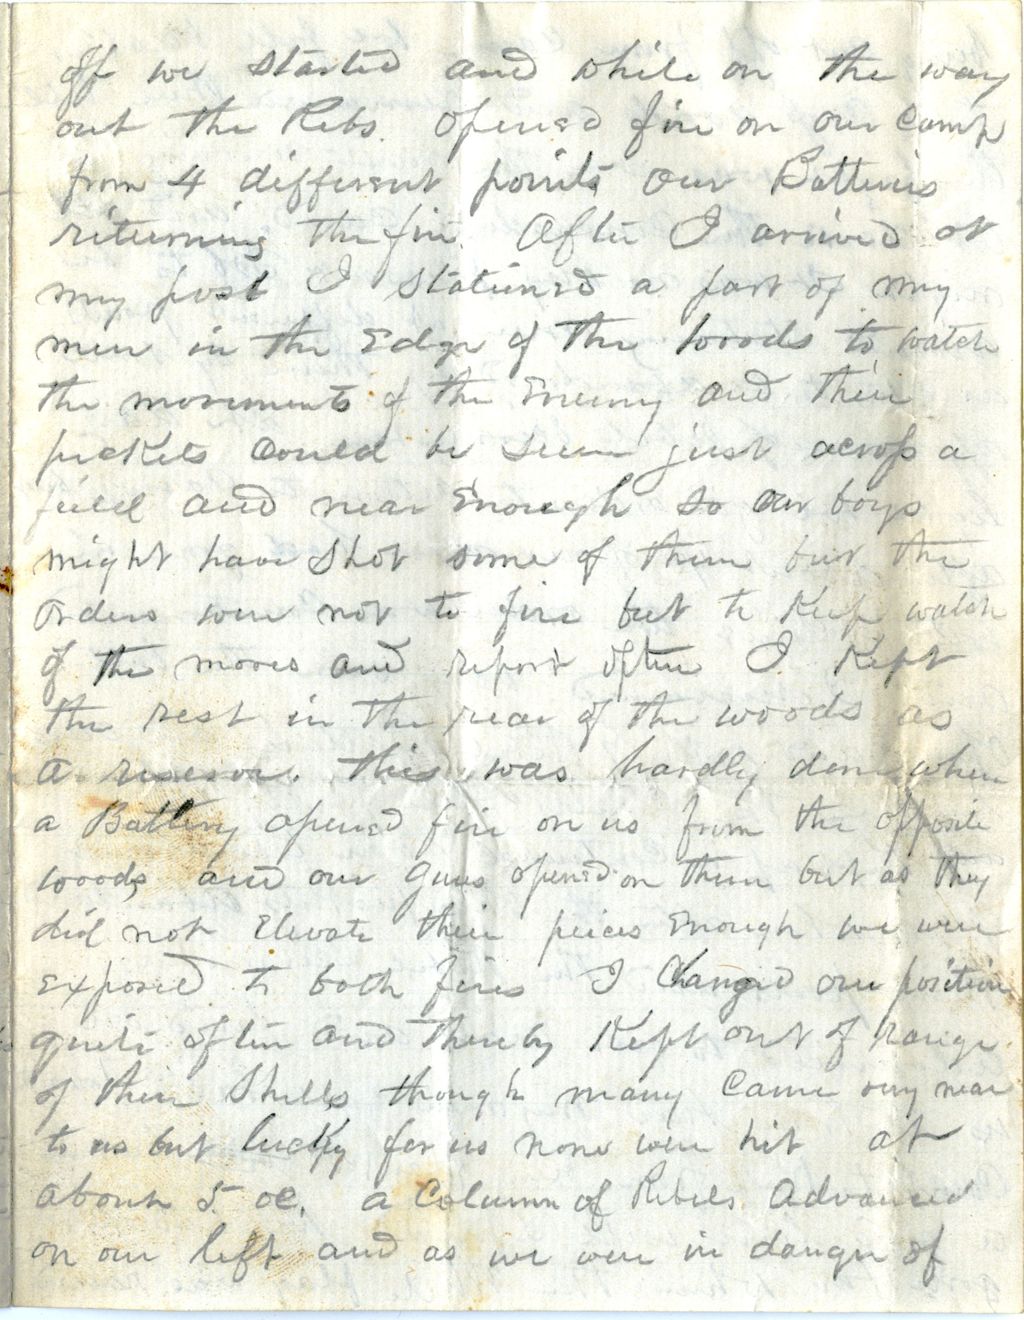 off we started and while on the way
out the Rebs. opened fire on our Camp
from 4 different points our Batteries
returning the fire. After I arrived at
my post I stationed a part of my
men in the Edge of the woods to watch
the movements of the Enemy and their
pickets could be seen just across a
field and near Enough so our boys
might have Shot some of them but the
orders were not to fire but to Keep watch
of the moves and report often I Kept
the rest in the rear of the woods as
a reserve. this was hardly done when
a Battery opened fire on us from the opposite
woods, and our guns opened on them but as they
did not Elevate their peices Enough we were
exposed to both fires I Changed our position
quite often and thereby Kept out of range
of their Shells though many Came very near
to us but lucky for us none were hit at
about 5 oc. a Column of Rebels Advanced
on our left and as we were in danger of